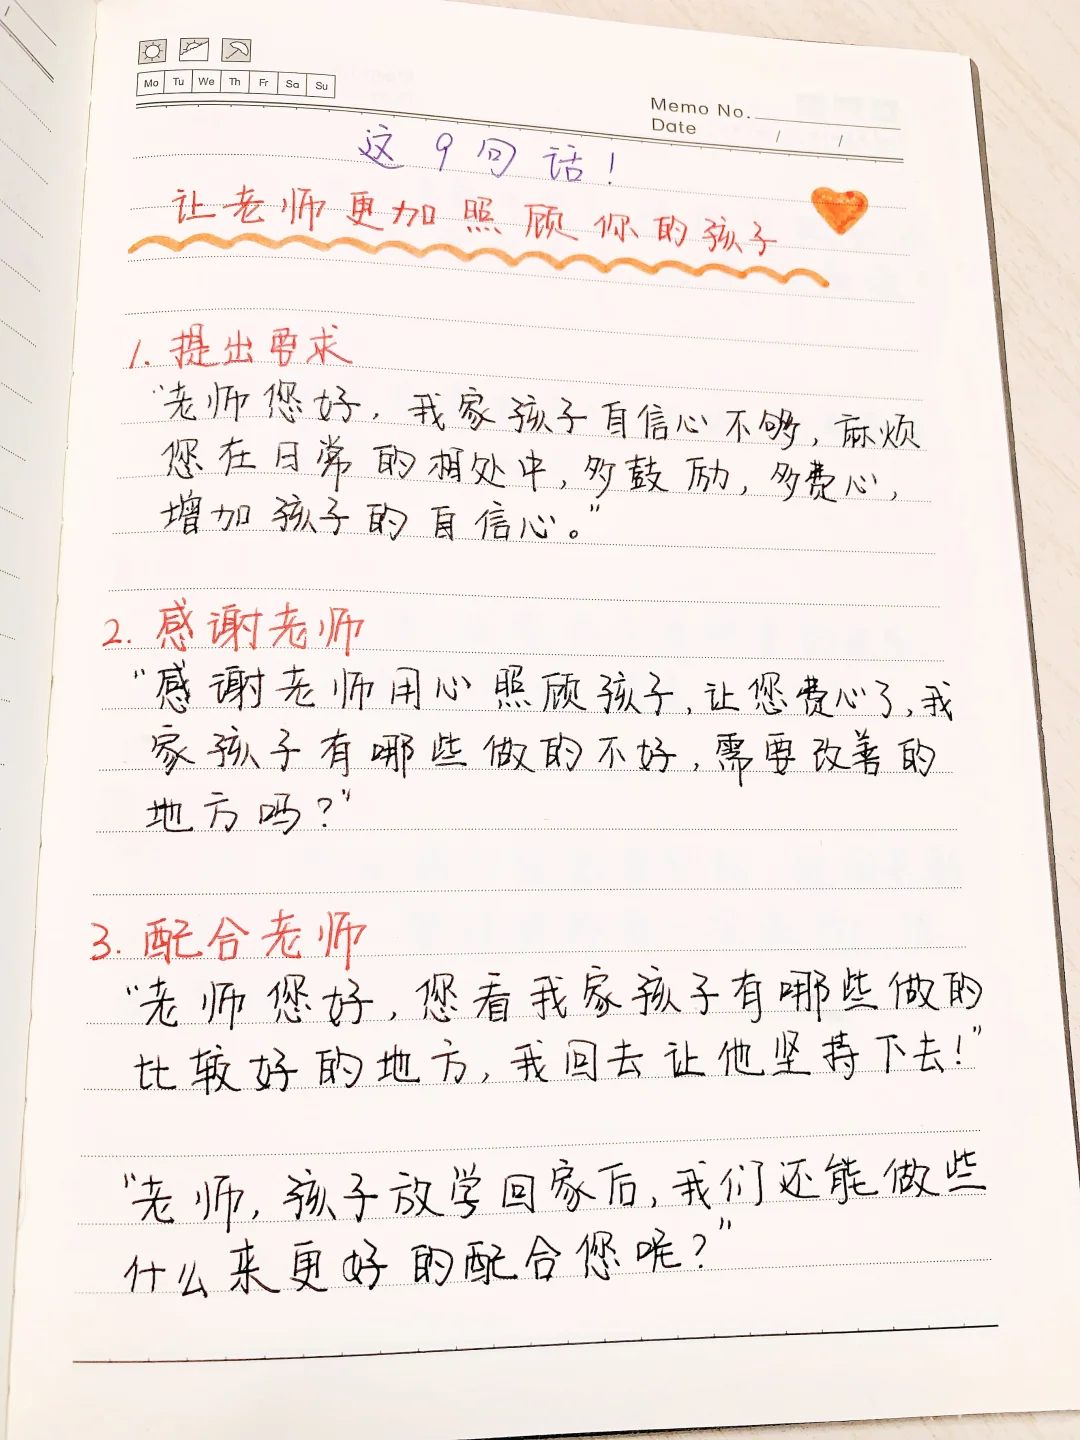 Mo Tu We Th Fr Sa Su
Memo No.
Date / /
这9句话!
让老师更加照顾你的孩子
1. 提出要求
“老师您好,我家孩子自信心不够,麻烦
您在日常的相处中,多鼓励,多费心,
增加孩子的自信心。”
2. 感谢老师
“感谢老师用心照顾孩子,让您费心了,我
家孩子有哪些做的不好,需要改善的
地方吗?”
3. 配合老师
“老师您好,您看我家孩子有哪些做的
比较好的地方,我回去让他坚持下去!”
“老师,孩子放学回家后,我们还能做些
什么来更好的配合您呢?”